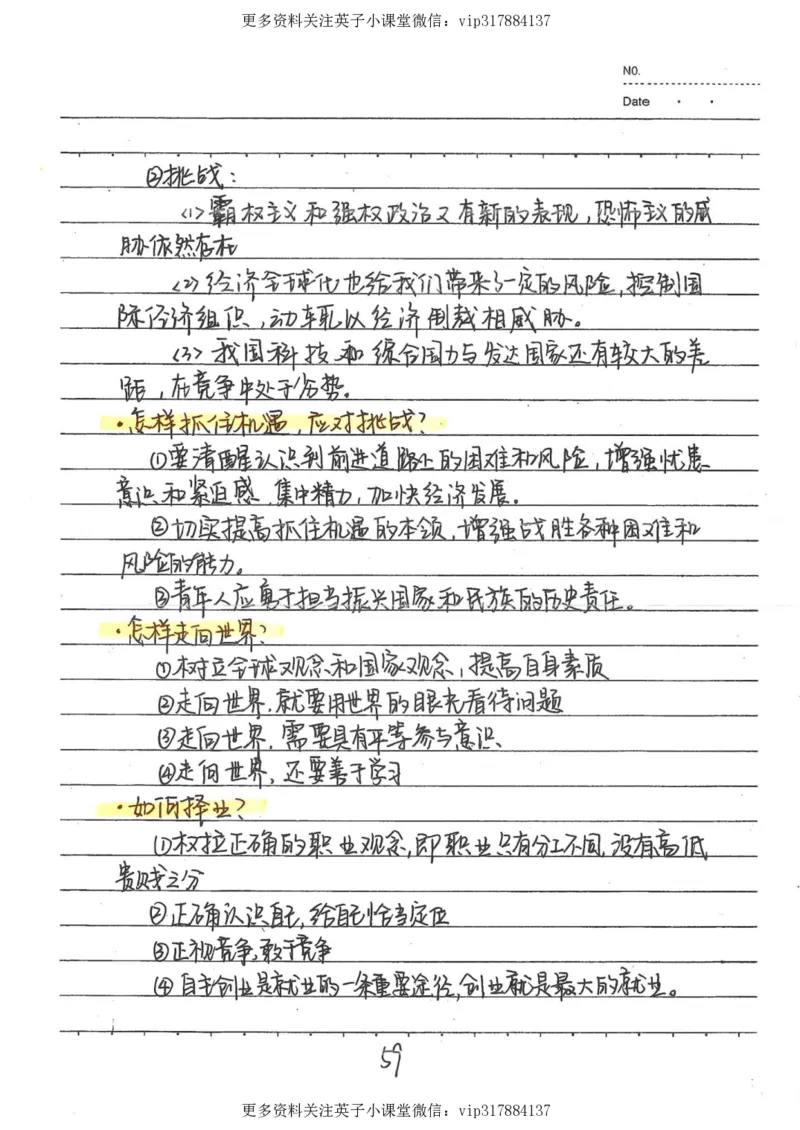 更多资料关注英子小课堂微信：vip317884137
NO.
Date
②挑战：
<1>霸权主义和强权政治又有新的表现，恐怖主义的威
胁依然存在
<2>经济全球化也给我们带来了一定的风险，控制国
际经济组织，动车轧以经济制裁相威胁。
<3>我国科技和综合国力与发达国家还有较大的差
距，在竞争中处于劣势。
·怎样抓住机遇，应对挑战？
①要清醒认识到前进道路上的困难和风险，增强忧患
意识和紧迫感，集中精力，加快经济发展。
②切实提高抓住机遇的本领，增强战胜各种困难和
风险的能力。
③青年人应勇于担当振兴国家和民族的历史责任。
·怎样走向世界？
①树立全球观念和国家观念，提高自身素质
②走向世界，就要用世界的眼光看待问题
③走向世界，需要具有平等参与意识
④走向世界，还要善于学习
·如何择业？
①树拉正确的职业观念，即职业只有分工不同，没有高低
贵贱之分
②正确认识自己，给自己恰当定位
③正视竞争，敢于竞争
④自主创业是就业的一条重要途径，创业就是最大的就业。
59
更多资料关注英子小课堂微信：vip317884137